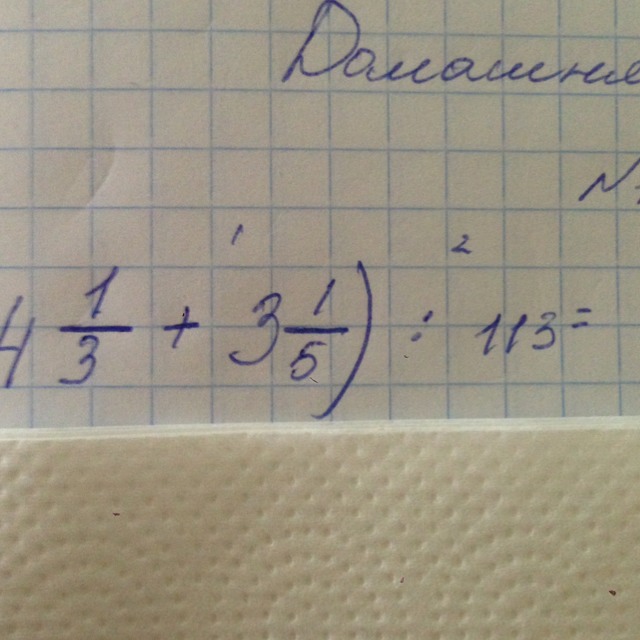 Домашня
№
1 2
4 1/3 + 3 1/5) : 113 =